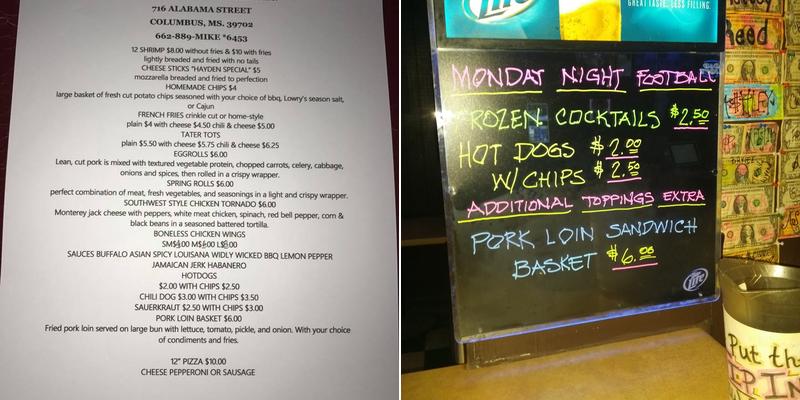 716 ALABAMA STREET
COLUMBUS, MS. 39702
662-889-MIKE *6453
12 SHRIMP $8.00 without fries & $10 with fries
lightly breaded and fried with no tails
CHEESE STICKS "HAYDEN SPECIAL" $5
mozzarella breaded and fried to perfection
HOMEMADE CHIPS $4
large basket of fresh cut potato chips seasoned with your choice of bbq, Lowry's season salt,
or Cajun
FRENCH FRIES crinkle cut or home-style
plain $4 with cheese $4.50 chili & cheese $5.00
TATER TOTS
plain $5.50 with cheese $5.75 chili & cheese $6.25
EGGROLLS $6.00
Lean, cut pork is mixed with textured vegetable protein, chopped carrots, celery, cabbage,
onions and spices, then rolled in a crispy wrapper.
SPRING ROLLS $6.00
perfect combination of meat, fresh vegetables, and seasonings in a light and crispy wrapper.
SOUTHWEST STYLE CHICKEN TORNADO $6.00
Monterey jack cheese with peppers, white meat chicken, spinach, red bell pepper, corn &
black beans in a seasoned battered tortilla.
BONELESS CHICKEN WINGS
SAUCES BUFFALO ASIAN SPICY LOUISANA WIDLY WICKED BBQ LEMON PEPPER
JAMAICAN JERK HABANERO
HOTDOGS
$2.00 WITH CHIPS $2.50
CHILI DOG $3.00 WITH CHIPS $3.50
SAUERKRAUT $2.50 WITH CHIPS $3.00
PORK LOIN BASKET $6.00
Fried pork loin served on large bun with lettuce, tomato, pickle, and onion. With your choice
of condiments and fries.
12" PIZZA $10.00
CHEESE PEPPERONI OR SAUSAGE
Lite
GREAT TASTE. LESS FILLING.
MONDAY NIGHT FOOTBALL
ROZEN COCKTAILS $2.50
HOT DOGS $2.00
W/ CHIPS $2.50
ADDITIONAL TOPPINGS EXTRA
PORK LOIN SANDWICH
BASKET $6.00
Lite
Reed
Put th